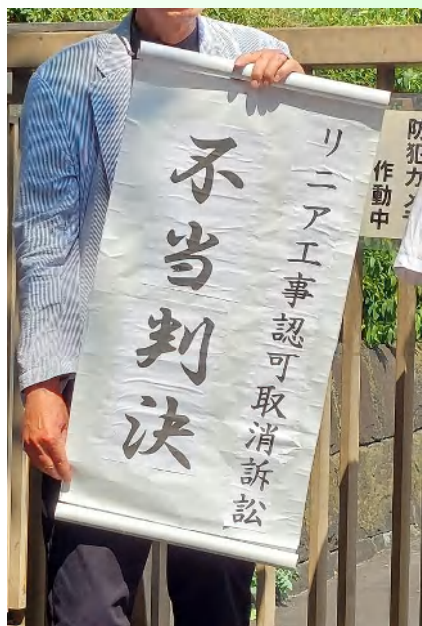 リニア工事認可取消訴訟
不当判決
防犯カメラ
作動中